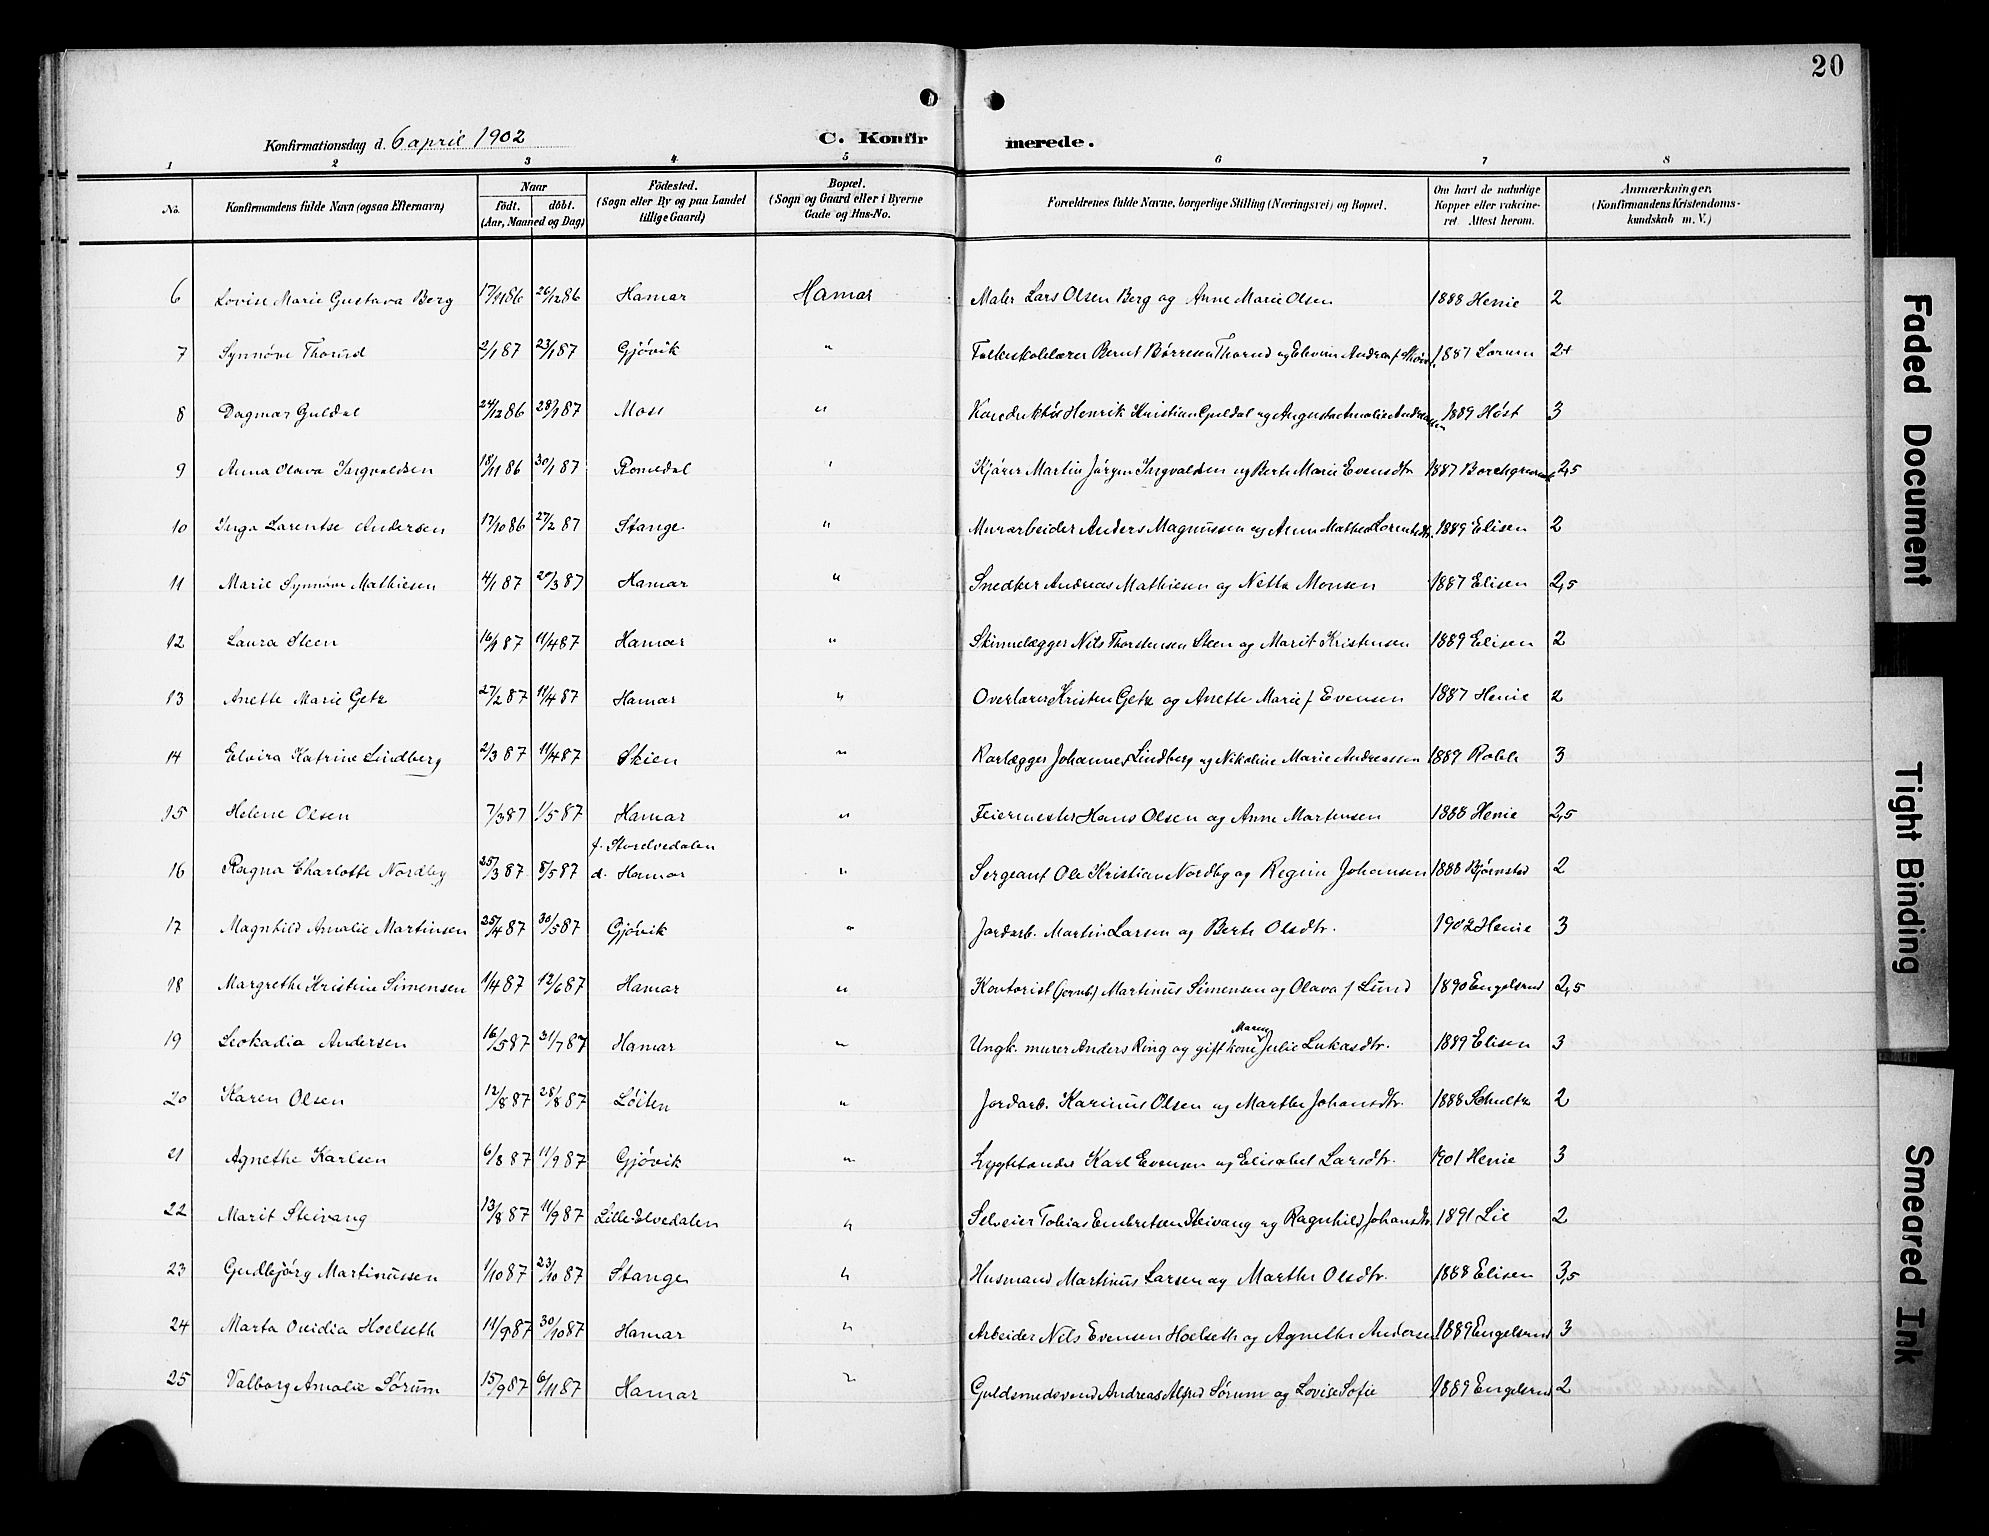 20
Konfirmationsdag d. 6 april 1902 C. Konfirmerede.
1 2 3 4 5 6 7 8
No. Konfirmandens fulde Navn (ogsaa Efternavn) Naar Födt. döbt. (Aar, Maaned og Dag) Födested. (Sogn eller By og paa Landet tillige Gaard) Bopæl. (Sogn og Gaard eller i Byerne Gade og Hus-No. Forældrenes fulde Navne, borgerlige Stilling (Næringsvei) og Bopæl. Om havt de naturlige Kopper eller vaccineret Attest herom. Anmærkninger. (Konfirmandens Kristendomskundskab m. V.)
6 Lovise Marie Gustava Berg 17/11 86 26/12 86 Hamar Hamar Maler Lars Olsen Berg og Anne Marie Olsen 1888 Henie 2
7 Synnöve Thorud 2/1 87 23/1 87 Gjövik " Folkeskolelærer Bernt Børresen Thorud og Elevine Andrea f. 1887 Lorum 2+
8 Dagmar Guldal 24/12 86 28/1 87 Moss " Henrik Kristian Guldal og Augusta Amalie Andreassen 1889 Høst 3
9 Anna Olava Ingvaldsen 18/11 86 30/1 87 Romedal " Kjörer Martin Jörgen Ingvaldsen og Berte Marie Evensdtr 1887 Borchgrevink 2,5
10 Inga Larentse Andersen 17/10 86 27/2 87 Stange " Murarbeider Anders Magnussen og Anne Mathea Lorentsdtr. 1889 Elisen 2
11 Marie Synnöve Mathiesen 4/1 87 20/3 87 Hamar " Snedker Andreas Mathiesen og Netta Monsen 1887 Elisen 2,5
12 Laura Steen 16/1 87 11/4 87 Hamar " Skinnelægger Nils Thorstensen Steen og Marit Kristensen 1889 Elisen 2
13 Anette Marie Getz 27/2 87 11/4 87 Hamar " Overlærer Kristen Getz og Anette Marie f Evensen 1887 Henie 2
14 Elvira Katrine Lindberg 2/3 87 11/4 87 Skien " Rørlægger Johannes Lindberg og Nikoline Marie Andreassen 1889 3
15 Helene Olsen 7/3 87 1/5 87 Hamar " Feiermester Hans Olsen og Anne Martensen 1888 Henie 2,5
16 Ragna Charlotte Nordby 25/3 87 8/5 87 f. Storelvedalen d. Hamar " Sergeant Ole Kristian Nordby og Regine Johansen 1888 Bjørnstad 2
17 Magnhild Amalie Martinsen 25/4 87 30/5 87 Gjövik " Jordarb. Martin Larsen og Berte Olsdtr. 1902 Henie 3
18 Margrethe Kristine Simensen 1/4 87 12/6 87 Hamar " Kontorist (jernb) Martinus Simensen og Olava f Lund 1890 Engelsrud 2,5
19 Leokadia Andersen 16/5 87 31/7 87 Hamar " Ungk. murer Anders Ring og gift kone Maren Julie Lukasdtr. 1889 Elisen 3
20 Karen Olsen 12/8 87 28/8 87 Löiten " Jordarb. Karinus Olsen og Marthe Johansdtr. 1888 Schultz 2
21 Agnethe Karlsen 6/8 87 11/9 87 Gjövik " Lygttender Karl Evensen og Elisabet Larsdtr. 1901 Henie 3
22 Marit Steivang 13/8 87 11/9 87 Lille-Elvedalen " Selveier Tobias Embretsen Steivang og Ragnhild Johansdtr 1891 Lie 2
23 Gudbjörg Martinussen 1/10 87 23/10 87 Stange " Husmand Martinus Larsen og Marthe Olsdtr. 1888 Elisen 3,5
24 Marta Ovidia Hoelseth 11/9 87 30/10 87 Hamar " Arbeider Nils Evensen Hoelseth og Agnethe Andersen 1889 Engelsrud 3
25 Valborg Amalie Sörum 15/9 87 6/11 87 Hamar " Guldsmedsvend Andreas Alfred Sörum og Lovise Sofie 1889 Engelsrud 2
Faded Document
Tight Binding
Smeared Ink